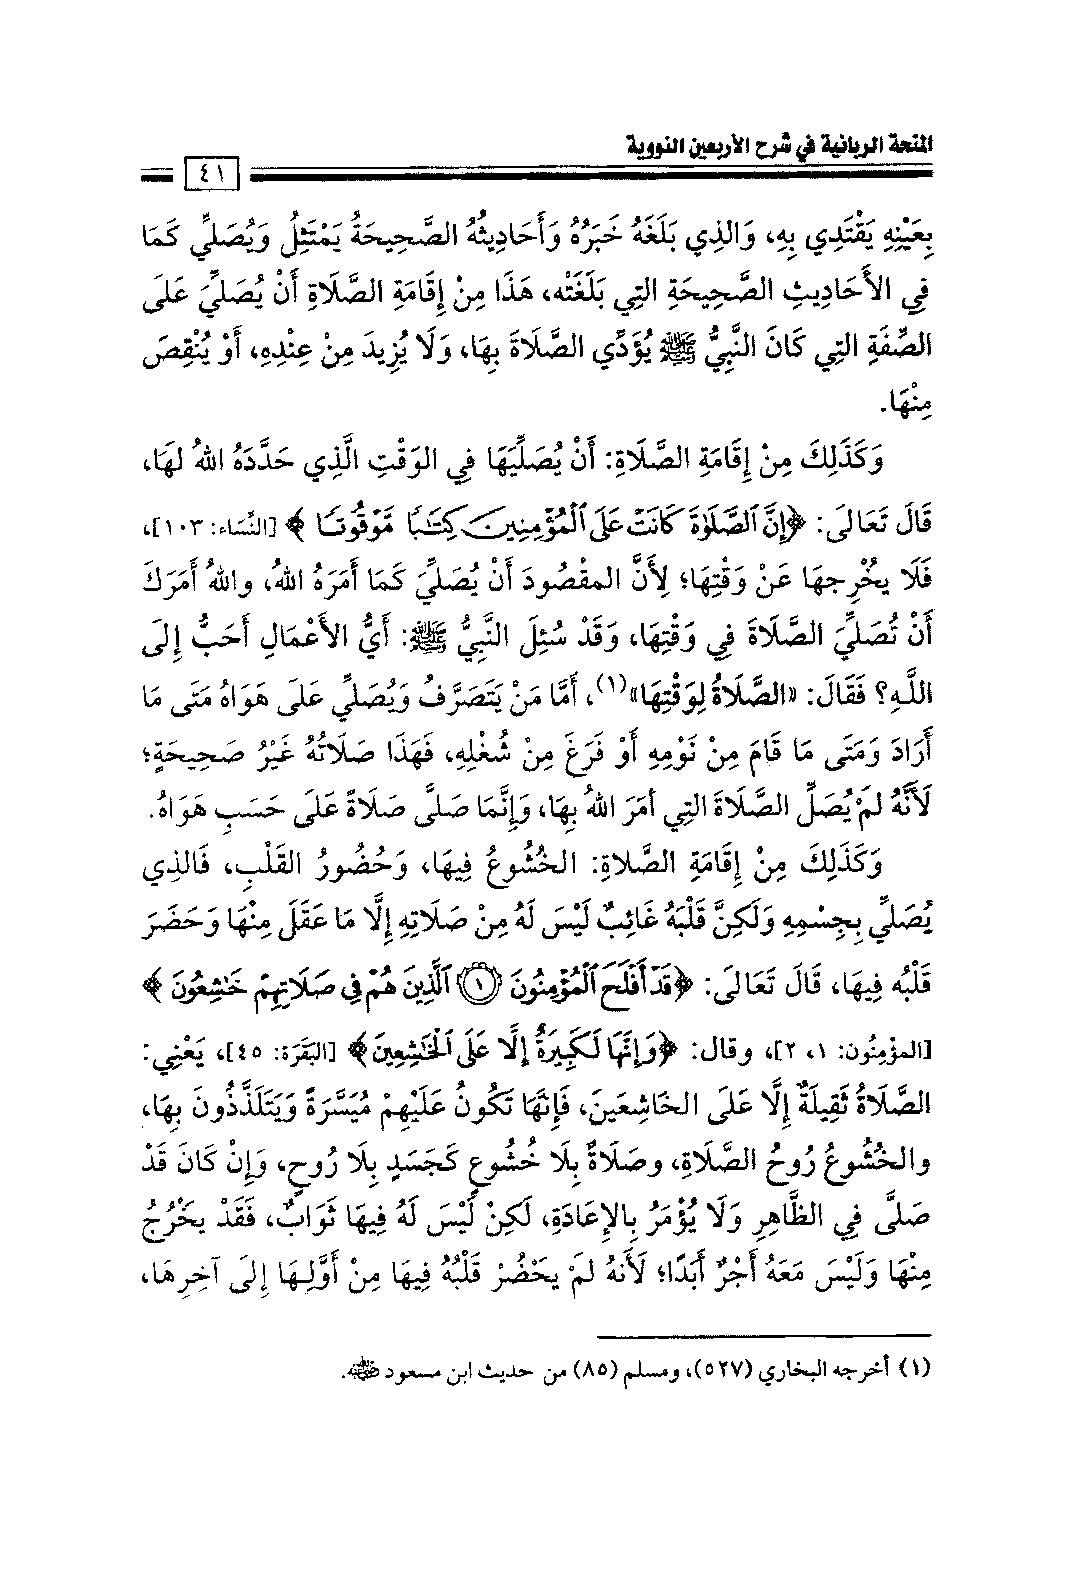 المنحة الربانية في شرح الأربعين النووية
٤١
بِعَيْنِهِ يَقْتَدِي بِهِ، وَالذِي بَلَغَهُ خَبَرُهُ وَأَحَادِيثُهُ الصَّحِيحَةُ يَمْتَثِلُ وَيُصَلِّي كَمَا
فِي الأَحَادِيثِ الصَّحِيحَةِ التِي بَلَغَتْه، هَذَا مِنْ إِقَامَةِ الصَّلَاةِ أَنْ يُصَلِّيَ عَلَى
الصِّفَةِ التِي كَانَ النَّبِيُّ ﷺ يُؤَدِّي الصَّلَاةَ بِهَا، وَلَا يُزِيدَ مِنْ عِنْدِهِ، أَوْ يُنْقِصَ
مِنْهَا.
وَكَذَلِكَ مِنْ إِقَامَةِ الصَّلَاةِ: أَنْ يُصَلِّيَهَا فِي الوَقْتِ الَّذِي حَدَّدَهُ اللهُ لهَا،
قَالَ تَعَالَى: ﴿إِنَّ ٱلصَّلَوٰةَ كَانَتْ عَلَى ٱلْمُؤْمِنِينَ كِتَٰبًا مَّوْقُوتًا﴾ [النِّسَاء: ١٠٣]،
فَلَا يُخْرِجهَا عَنْ وَقْتِهَا؛ لِأَنَّ المقْصُودَ أَنْ يُصَلِّيَ كَمَا أَمَرَهُ اللهُ، واللهُ أَمَرَكَ
أَنْ تُصَلِّيَ الصَّلَاةَ فِي وَقْتِهَا، وَقَدْ سُئِلَ النَّبِيُّ ﷺ: أَيُّ الأَعْمَالِ أَحَبُّ إِلَى
اللَّـهِ؟ فَقَالَ: «الصَّلَاةُ لِوَقْتِهَا»(١)، أَمَّا مَنْ يَتَصَرَّفُ وَيُصَلِّي عَلَى هَوَاهُ مَتَى مَا
أَرَادَ وَمَتَى مَا قَامَ مِنْ نَوْمِهِ أَوْ فَرَغَ مِنْ شُغْلِهِ، فَهَذَا صَلَاتُهُ غَيْرُ صَحِيحَةٍ؛
لَأَنَّهُ لَمْ يُصَلِّ الصَّلَاةَ التِي أَمَرَ اللهُ بِهَا، وَإِنَّمَا صَلَّى صَلَاةً عَلَى حَسَبِ هَوَاهُ.
وَكَذَلِكَ مِنْ إِقَامَةِ الصَّلاةِ: الخُشُوعُ فِيهَا، وَحُضُورُ القَلْبِ، فَالذِي
يُصَلِّي بِجِسْمِهِ وَلَكِنَّ قَلْبَهُ غَائِبٌ لَيْسَ لَهُ مِنْ صَلَاتِهِ إِلَّا مَا عَقَلَ مِنْهَا وَحَضَرَ
قَلْبُه فِيهَا، قَالَ تَعَالَى: ﴿قَدْ أَفْلَحَ ٱلْمُؤْمِنُونَ ١ ٱلَّذِينَ هُمْ فِى صَلَاتِهِمْ خَٰشِعُونَ﴾
[المؤْمِنُون: ١، ٢]، وقال: ﴿وَإِنَّهَا لَكَبِيرَةٌ إِلَّا عَلَى ٱلْخَٰشِعِينَ﴾ [البَقَرَة: ٤٥]، يَعْنِي:
الصَّلَاةُ ثَقِيلَةٌ إِلَّا عَلَى الخَاشِعَينَ، فَإِنَّهَا تَكُونُ عَلَيْهِمْ مُيَسَّرَةً وَيَتَلَذَّذُونَ بِهَا،
والخُشُوعُ رُوحُ الصَّلَاةِ، وصَلَاةٌ بِلَا خُشُوعٍ كَجَسَدٍ بِلَا رُوحٍ، وَإِنْ كَانَ قَدْ
صَلَّى فِي الظَّاهِرِ وَلَا يُؤْمَرُ بِالإِعَادَةِ، لَكِنْ لَيْسَ لَهُ فِيهَا ثَوَابٌ، فَقَدْ يَخْرُجُ
مِنْهَا وَلَيْسَ مَعَهُ أَجْرٌ أَبَدًا؛ لَأَنهُ لَمْ يَحْضُرْ قَلْبُهُ فِيهَا مِنْ أَوَّلِهَا إِلَى آخِرِهَا،
(١) أخرجه البخاري (٥٢٧)، ومسلم (٨٥) من حديث ابن مسعود رضي الله عنه.